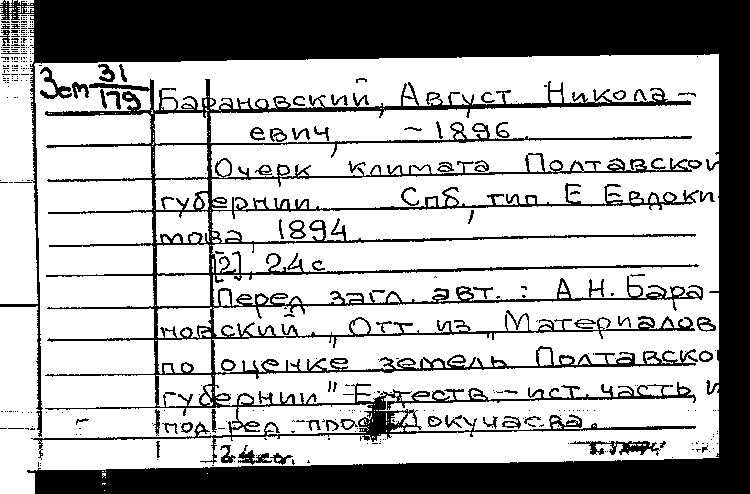 Зст 31/179
Барановский, Август Никола-
евич, - 1896.
Очерк климата Полтавской
губернии. Спб, тип. Е Евдоки-
мова, 1894.
[2], 24 с
Перед загл. авт. : А Н. Бара-
новский. „Отт. из „Материалов
по оценке земель Полтавской
губернии" Естеств-ист. часть,
под ред. проф Докучаева.
24ст.